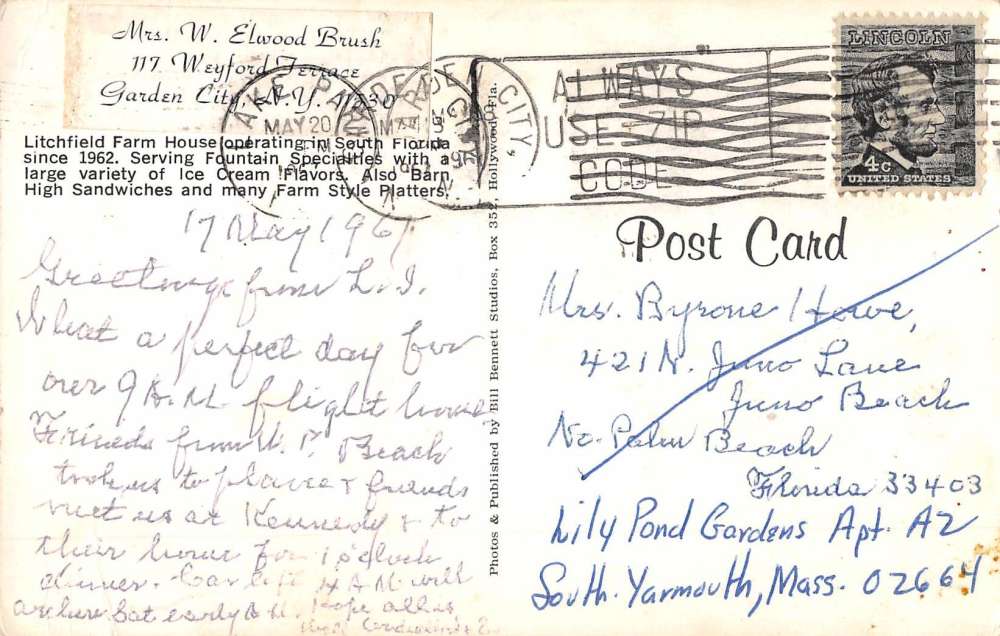 Mrs. W. Elwood Brush
117 Weyford Terrace
Garden City, N.Y. 11530
Litchfield Farm House operating in South Florida
since 1962. Serving Fountain Specialties with a
large variety of Ice Cream Flavors. Also Barn
High Sandwiches and many Farm Style Platters.
17 May 1967
Greetings from L.I.
What a perfect day for
our 9 A.M. flight home
Friends from W. P. Beach
took us to plane & friends
met us at Kennedy & to
their home for 1 o'clock
dinner. 4 A.M. will
Sat early A.M. Hope all is
Photos & Published by Bill Bennett Studios, Box 352, Hollywood, Fla.
MAY 20
CITY,
ALWAYS
USE ZIP
CODE
LINCOLN
4c
UNITED STATES
Post Card
Mrs. Byrone Howe,
421 N. Juno Lane
Juno Beach
No. Palm Beach
Florida 33403
Lily Pond Gardens Apt. A2
South. Yarmouth, Mass. 02664